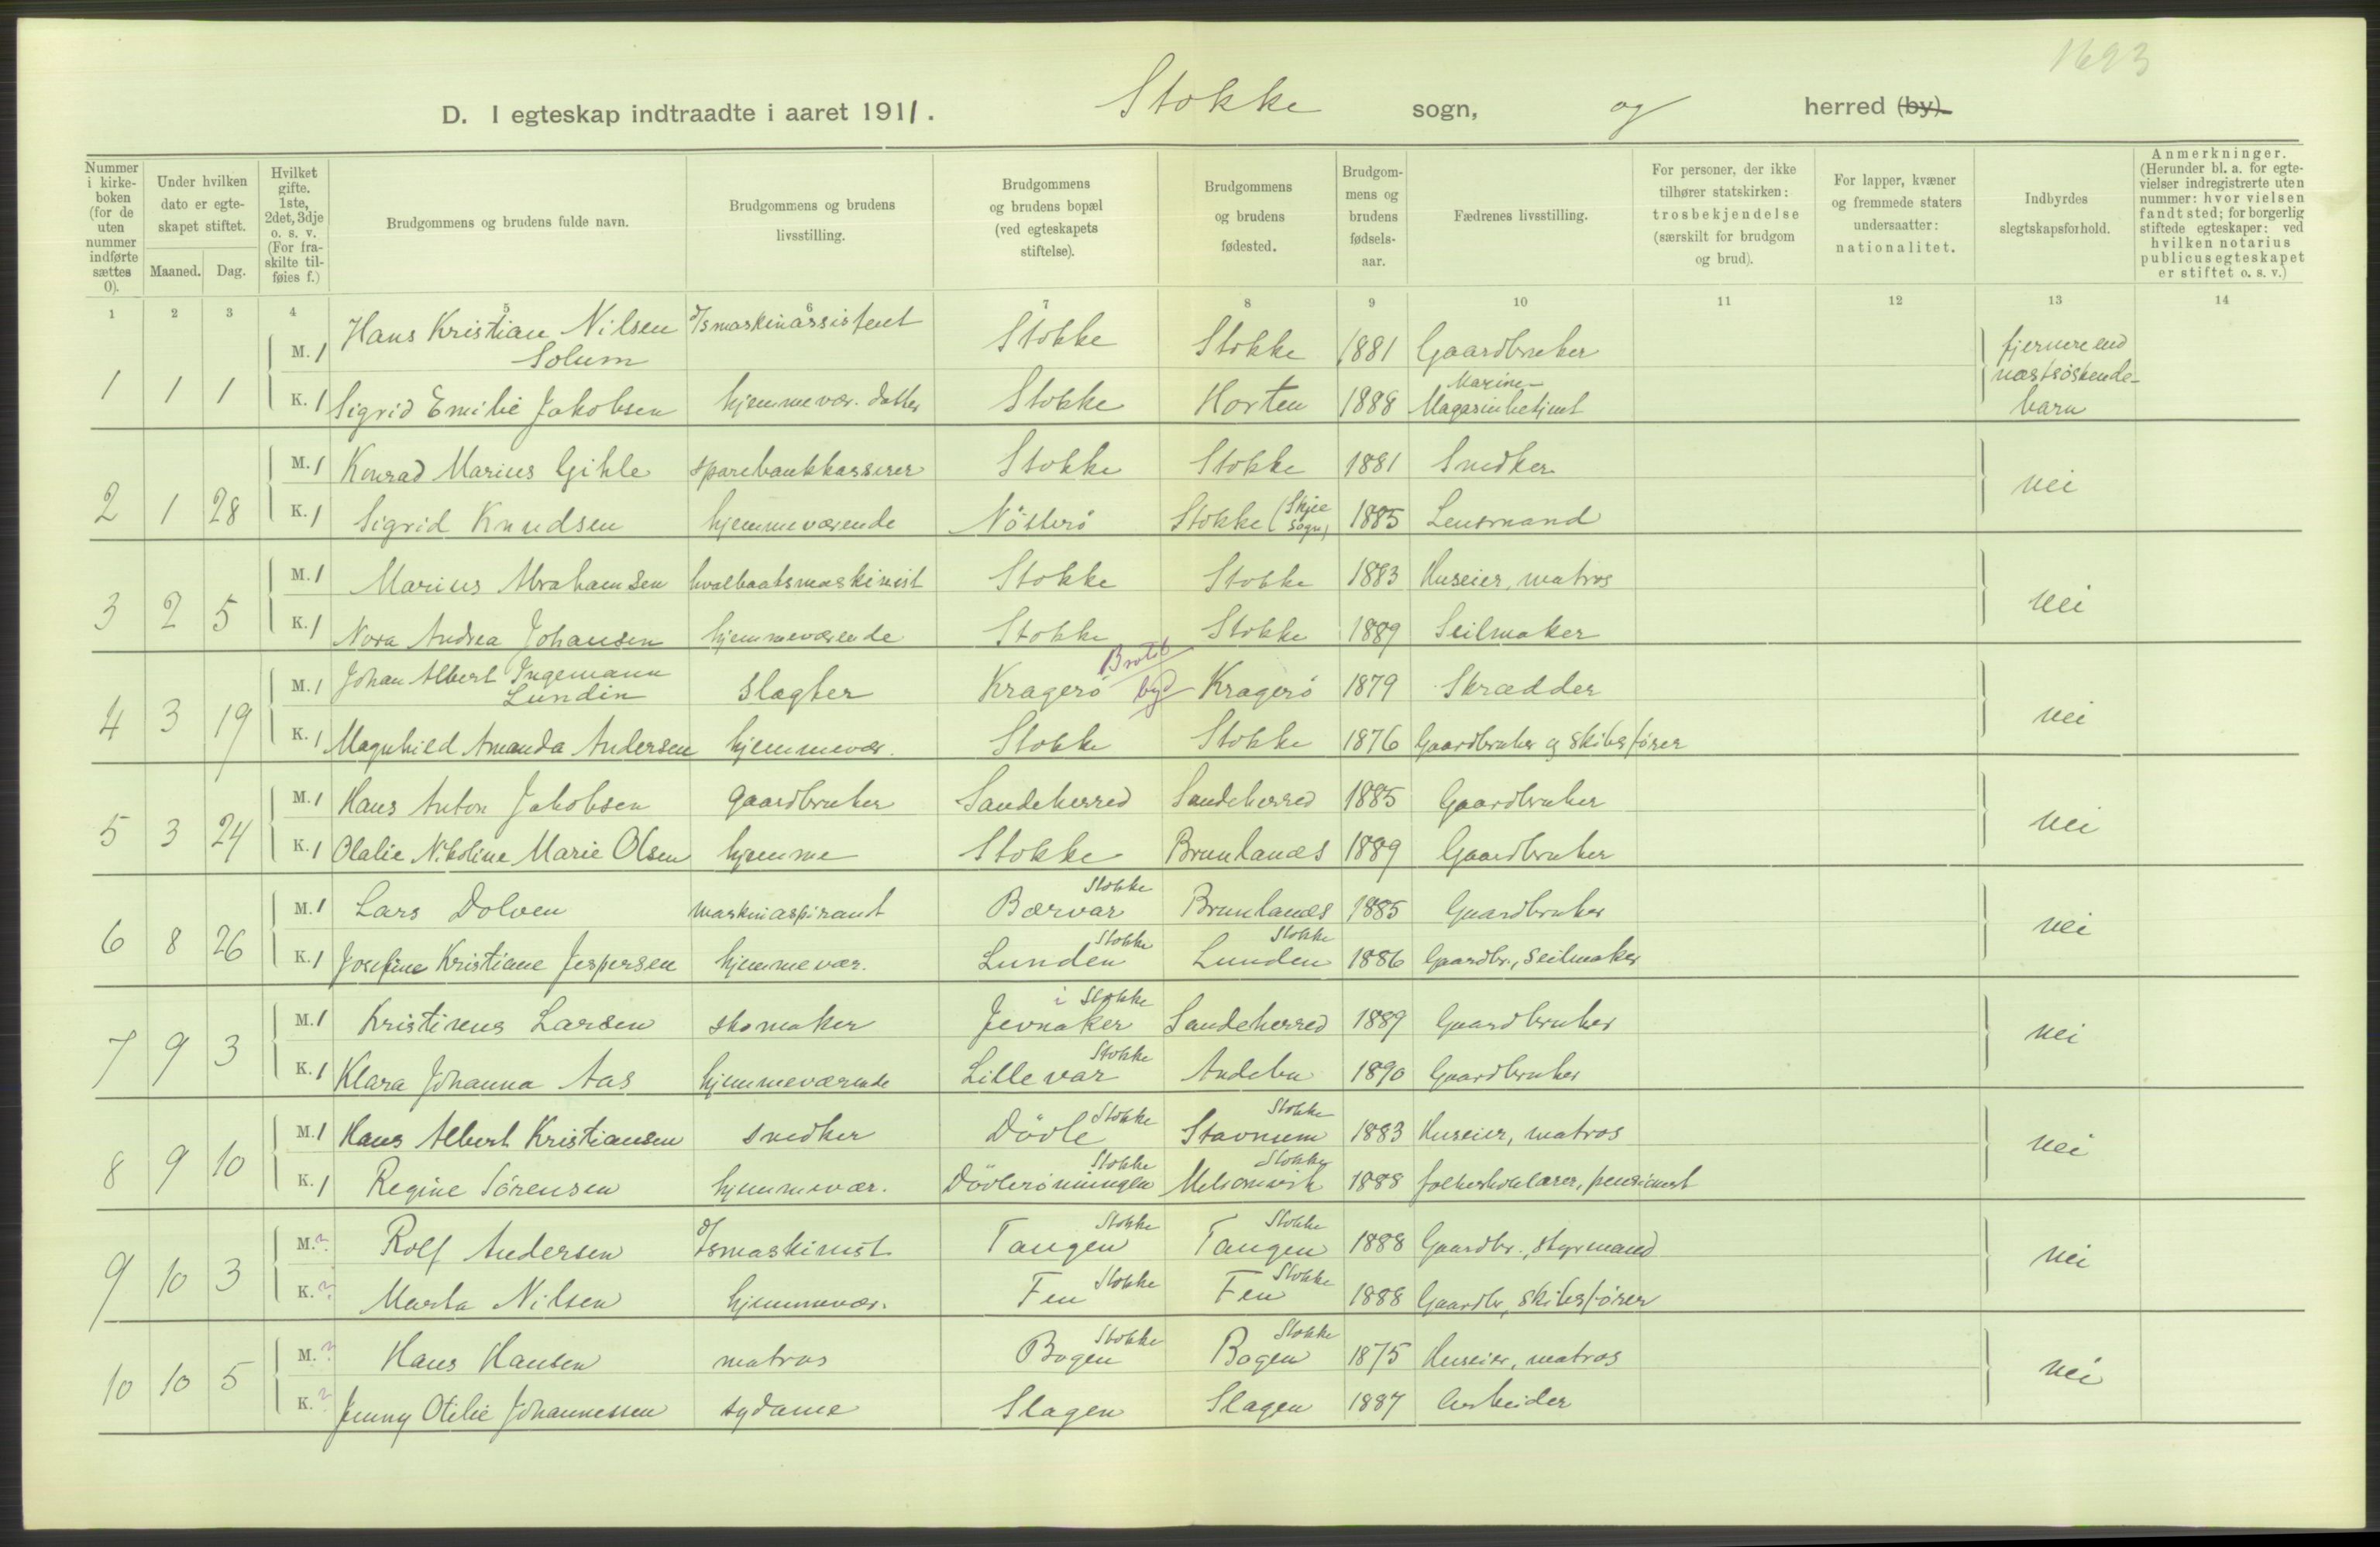 1693
D. I egteskap indtraadte i aaret 1911. Stokke sogn, og herred (by).
Nummer i kirkeboken (for de uten nummer indførte sættes 0).
Under hvilken dato er egteskapet stiftet.
Maaned. Dag.
Hvilket gifte. 1ste, 2det, 3dje o. s. v. (For fraskilte tilføies f.)
Brudgommens og brudens fulde navn.
Brudgommens og brudens livsstilling.
Brudgommens og brudens bopæl (ved egteskapets stiftelse).
Brudgommens og brudens fødested.
Brudgommens og brudens fødselsaar.
Fædrenes livsstilling.
For personer, der ikke tilhører statskirken: trosbekjendelse (særskilt for brudgom og brud).
For lapper, kvæner og fremmede staters undersaatter: nationalitet.
Indbyrdes slegtskapsforhold.
Anmerkninger. (Herunder bl. a. for egtevielser indregistrerte uten nummer: hvor vielsen fandt sted; for borgerlig stiftede egteskaper: ved hvilken notarius publicus egteskapet er stiftet o. s. v.)
1 2 3 4 5 6 7 8 9 10 11 12 13 14
1 1 1
M. 1 Hans Kristian Nilsen Solum D/smaskinassistent Stokke Stokke 1881 Gaardbruker
K. 1 Sigrid Emilie Jakobsen hjemmevær. datter Stokke Horten 1888 Marine-Magasinbetjent
fjernere end næstsøskende-barn
2 1 28
M. 1 Konrad Marius Gihle sparebankkasserer Stokke Stokke 1881 Snedker
K. 1 Sigrid Knudsen hjemmeværende Nötterö Stokke (Skjee sogn) 1885 Lensmand
nei
3 2 5
M. 1 Marius Abrahamsen hvalbaatsmaskinist Stokke Stokke 1883 Huseier, matros
K. 1 Nora Andrea Johansen hjemmeværende Stokke Stokke 1889 Seilmaker
nei
4 3 19
M. 1 Johan Albert Ingemann Lundin slagter Kragerö by Kragerö 1879 Skrædder
K. 1 Magnhild Amanda Andersen hjemmevær. Stokke Stokke 1876 Gaardbruker og skibsfører
nei
5 3 24
M. 1 Hans Anton Jakobsen gaardbruker Sandeherred Sandeherred 1885 Gaardbruker
K. 1 Olalie Nikoline Marie Olsen hjemme Stokke Brunlanes 1889 Gaardbruker
nei
6 8 26
M. 1 Lars Dolven maskinaspirant Bærvar Stokke Brunlanes 1885 Gaardbruker
K. 1 Josefine Kristiane Jespersen hjemmevær. Lunden Stokke Lunden Stokke 1886 Gaardbr., Seilmaker
nei
7 9 3
M. 1 Kristinus Larsen skomaker Jevnaker i Stokke Sandeherred 1889 Gaardbruker
K. 1 Klara Johanna Aas hjemmeværende Lillevar Stokke Andebu 1890 Gaardbruker
nei
8 9 10
M. 1 Hans Albert Kristiansen snedker Dövle Stokke Stavnum Stokke 1883 Huseier, matros
K. 1 Regine Sörensen hjemmevær. Dövlerönningen Stokke Melsomvik Stokke 1888 folkeskolelærer, pensionert
nei
9 10 3
M. ? Rolf Andersen D/smaskinist Tangen Stokke Tangen Stokke 1888 Gaardbr., styrmand
K. ? Marta Nilsen hjemmevær. Fen Stokke Fen Stokke 1888 Gaardbr, skibsfører
nei
10 10 5
M. ? Hans Hansen matros Bogen Stokke Bogen Stokke 1875 Huseier, matros
K. ? Jenny Otilie Johannessen sydame Slagen Slagen 1887 Arbeider
nei